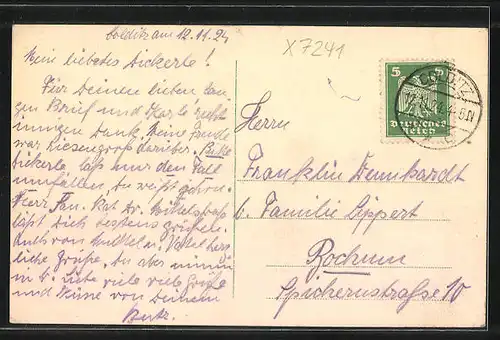 Colditz am 12.11.24
Mein liebstes Dickerle!
Für Deinen lieben lan-
gen Brief und Karte
innigen Dank. Meine Freude
war riesengroß darüber. Bitte
Dickerle laß nur den
umfallen, Du weißt schon.
Herr San. Rat Dr. Mittelstraß
läßt Dich bestens grüßen.
Auch von Mutteln, Vattel herz-
liche Grüße, Du aber nimm
viele viele Grüße
und Küsse von Deinem
Butz.
X7241
5
Deutsches
Reich
COLDITZ
Herrn
Franklin Demnhardt
b. Familie Lippert
Bochum
Spichernstraße 10